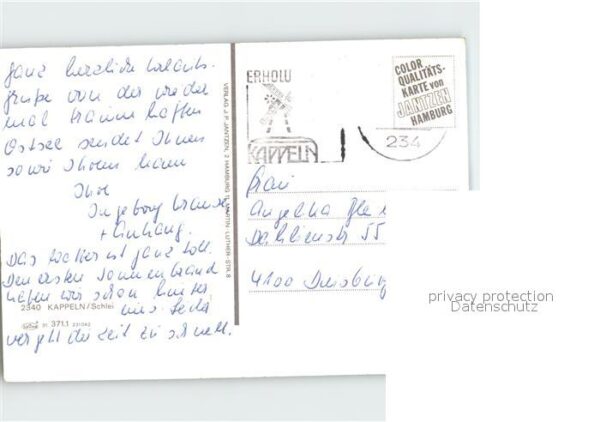 ganz herzliche Urlaubs-
grüße von der wieder
mal traumhaften
Ostsee sendet Ihnen
sowie Ihrem
Ihre
Ingeborg
+ Anhang.
Das Wetter ist ganz toll.
Den ersten Sonnenbrand
haben wir schon hinter
uns. Leider
vergeht die Zeit zu schnell.
2340 KAPPELN/Schlei
St. 371.1
VERLAG J. P. JANTZEN, 2 HAMBURG 70, MARTIN-LUTHER-STR. 8
ERHOLU
KAPPELN
234
COLOR
QUALITÄTS-
KARTE von
JANTZEN
HAMBURG
Frau
Angelika
Dahlienstr 55
4100 Duisburg
privacy protection
Datenschutz